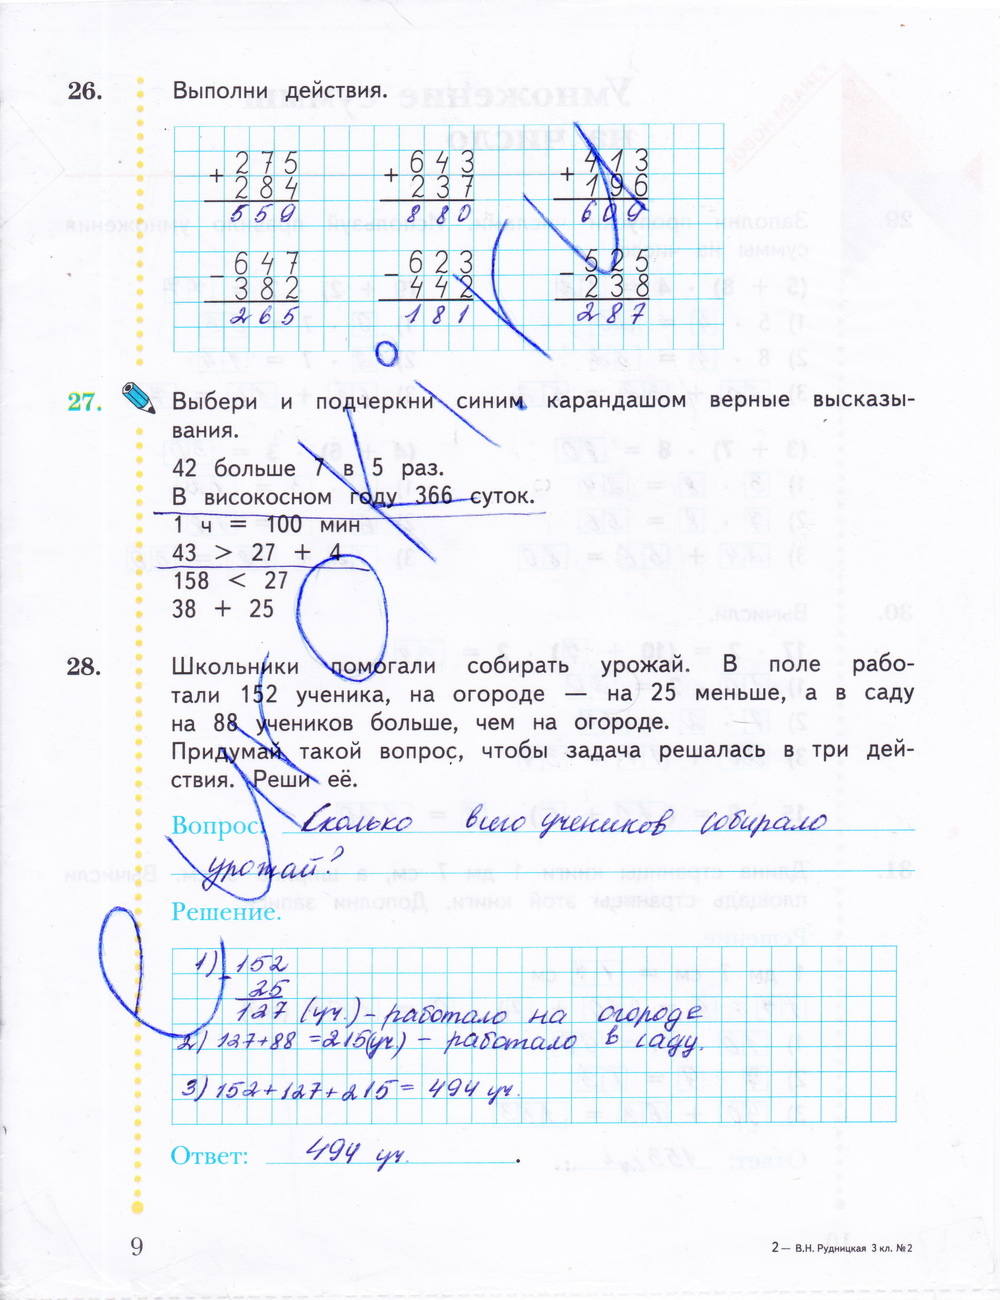 26. Выполни действия.
+ 275 + 643 + 413
284 237 196
559 880 609
- 647 - 623 - 525
382 442 238
265 181 287
27. Выбери и подчеркни синим карандашом верные высказы-
вания.
42 больше 7 в 5 раз.
В високосном году 366 суток.
1 ч = 100 мин
43 > 27 + 4
158 < 27
38 + 25
28. Школьники помогали собирать урожай. В поле рабо-
тали 152 ученика, на огороде — на 25 меньше, а в саду
на 88 учеников больше, чем на огороде.
Придумай такой вопрос, чтобы задача решалась в три дей-
ствия. Реши её.
Вопрос. Сколько всего учеников собирало
урожай?
Решение.
1) - 152
25
127 (уч.) - работало на огороде
2) 127+88=215(уч) - работало в саду.
3) 152+127+215= 494 уч.
Ответ: 494 уч.
9
2 — В.Н. Рудницкая 3 кл. №2